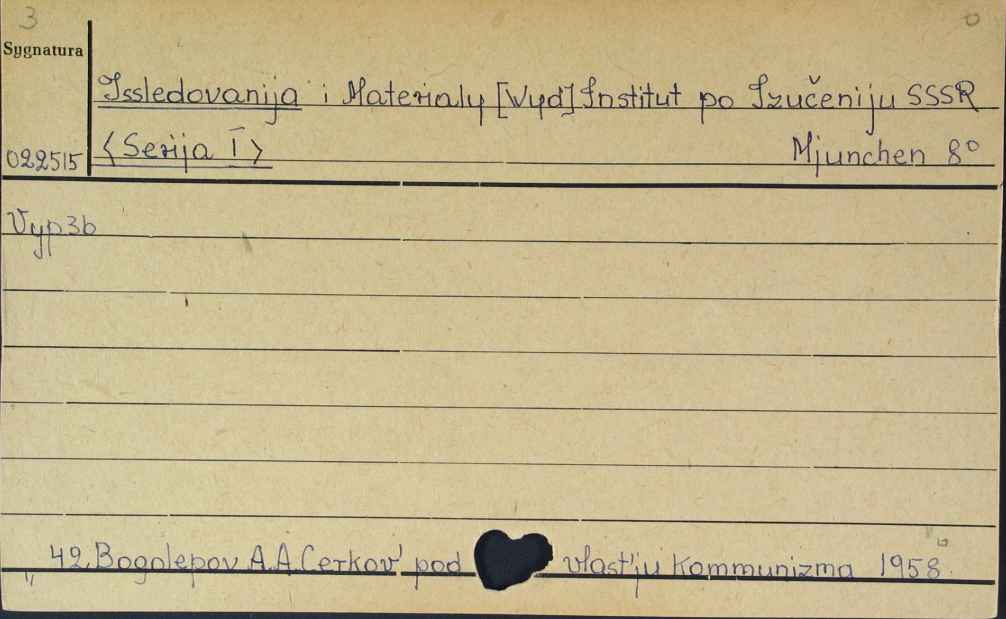 3
Sygnatura
Issledovanija i Materialy [Wyd] Institut po Izučeniju SSSR
022515 <Serija I> Mjunchen 8°
Vyp3b
42. Bogolepov A.A Cerkov' pod vlast'ju kommunizma 1958